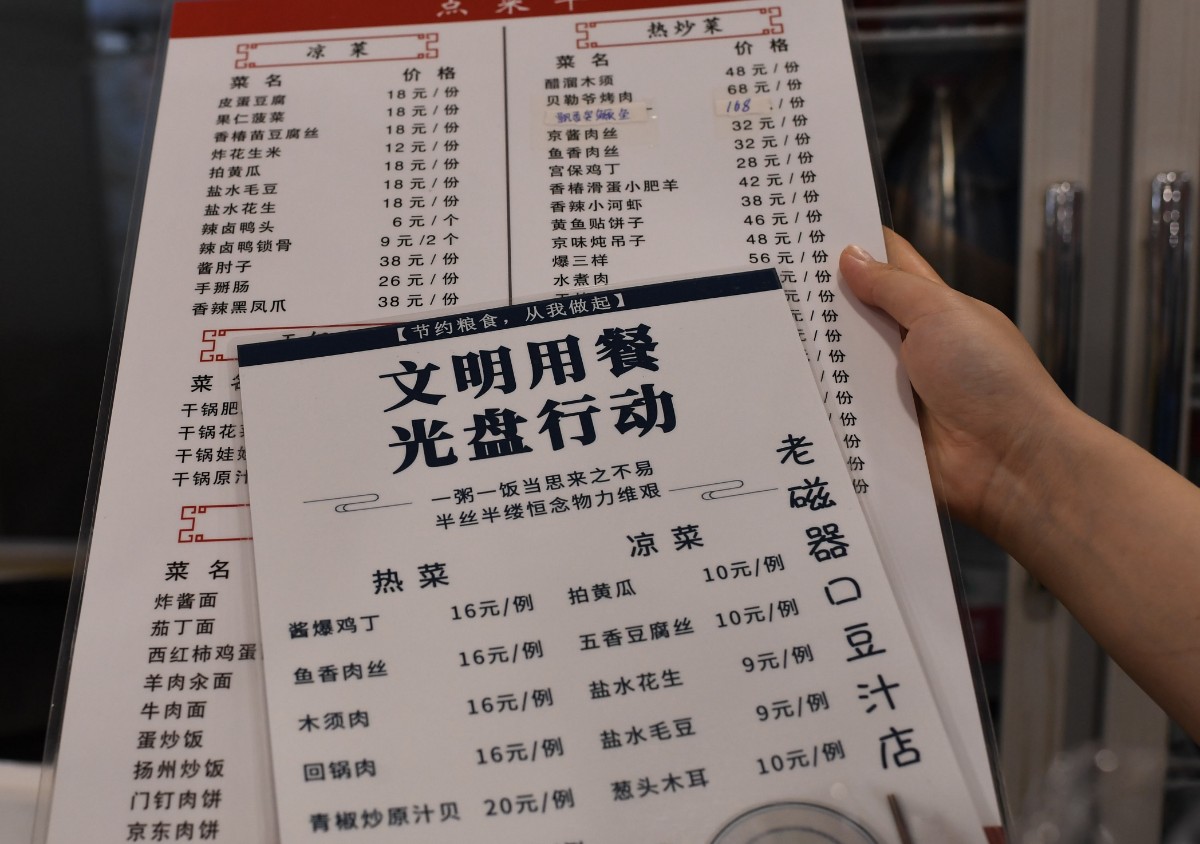 点菜单
凉 菜
菜 名 价 格
皮蛋豆腐 18 元 / 份
果仁菠菜 18 元 / 份
香椿苗豆腐丝 18 元 / 份
炸花生米 12 元 / 份
拍黄瓜 18 元 / 份
盐水毛豆 18 元 / 份
盐水花生 18 元 / 份
辣卤鸭头 6 元 / 个
辣卤鸭锁骨 9 元 /2 个
酱肘子 38 元 / 份
手掰肠 26 元 / 份
香辣黑凤爪 38 元 / 份
热炒菜
菜 名 价 格
醋溜木须 48 元 / 份
贝勒爷烤肉 68 元 / 份
168 / 份
京酱肉丝 32 元 / 份
鱼香肉丝 32 元 / 份
宫保鸡丁 28 元 / 份
香椿滑蛋小肥羊 42 元 / 份
香辣小河虾 38 元 / 份
黄鱼贴饼子 46 元 / 份
京味炖吊子 48 元 / 份
爆三样 56 元 / 份
水煮肉 元 / 份
元 / 份
元 / 份
元 / 份
/ 份
/ 份
/ 份
/ 份
份
份
份
菜
干锅肥
干锅花
干锅娃
干锅原汁
菜 名
炸酱面
茄丁面
西红柿鸡蛋
羊肉汆面
牛肉面
蛋炒饭
扬州炒饭
门钉肉饼
京东肉饼
【节约粮食，从我做起】
文明用餐
光盘行动
一粥一饭当思来之不易
半丝半缕恒念物力维艰
热菜
酱爆鸡丁 16元/例
鱼香肉丝 16元/例
木须肉 16元/例
回锅肉 16元/例
青椒炒原汁贝 20元/例
凉菜
拍黄瓜 10元/例
五香豆腐丝 10元/例
盐水花生 9元/例
盐水毛豆 9元/例
葱头木耳 10元/例
老磁器口豆汁店